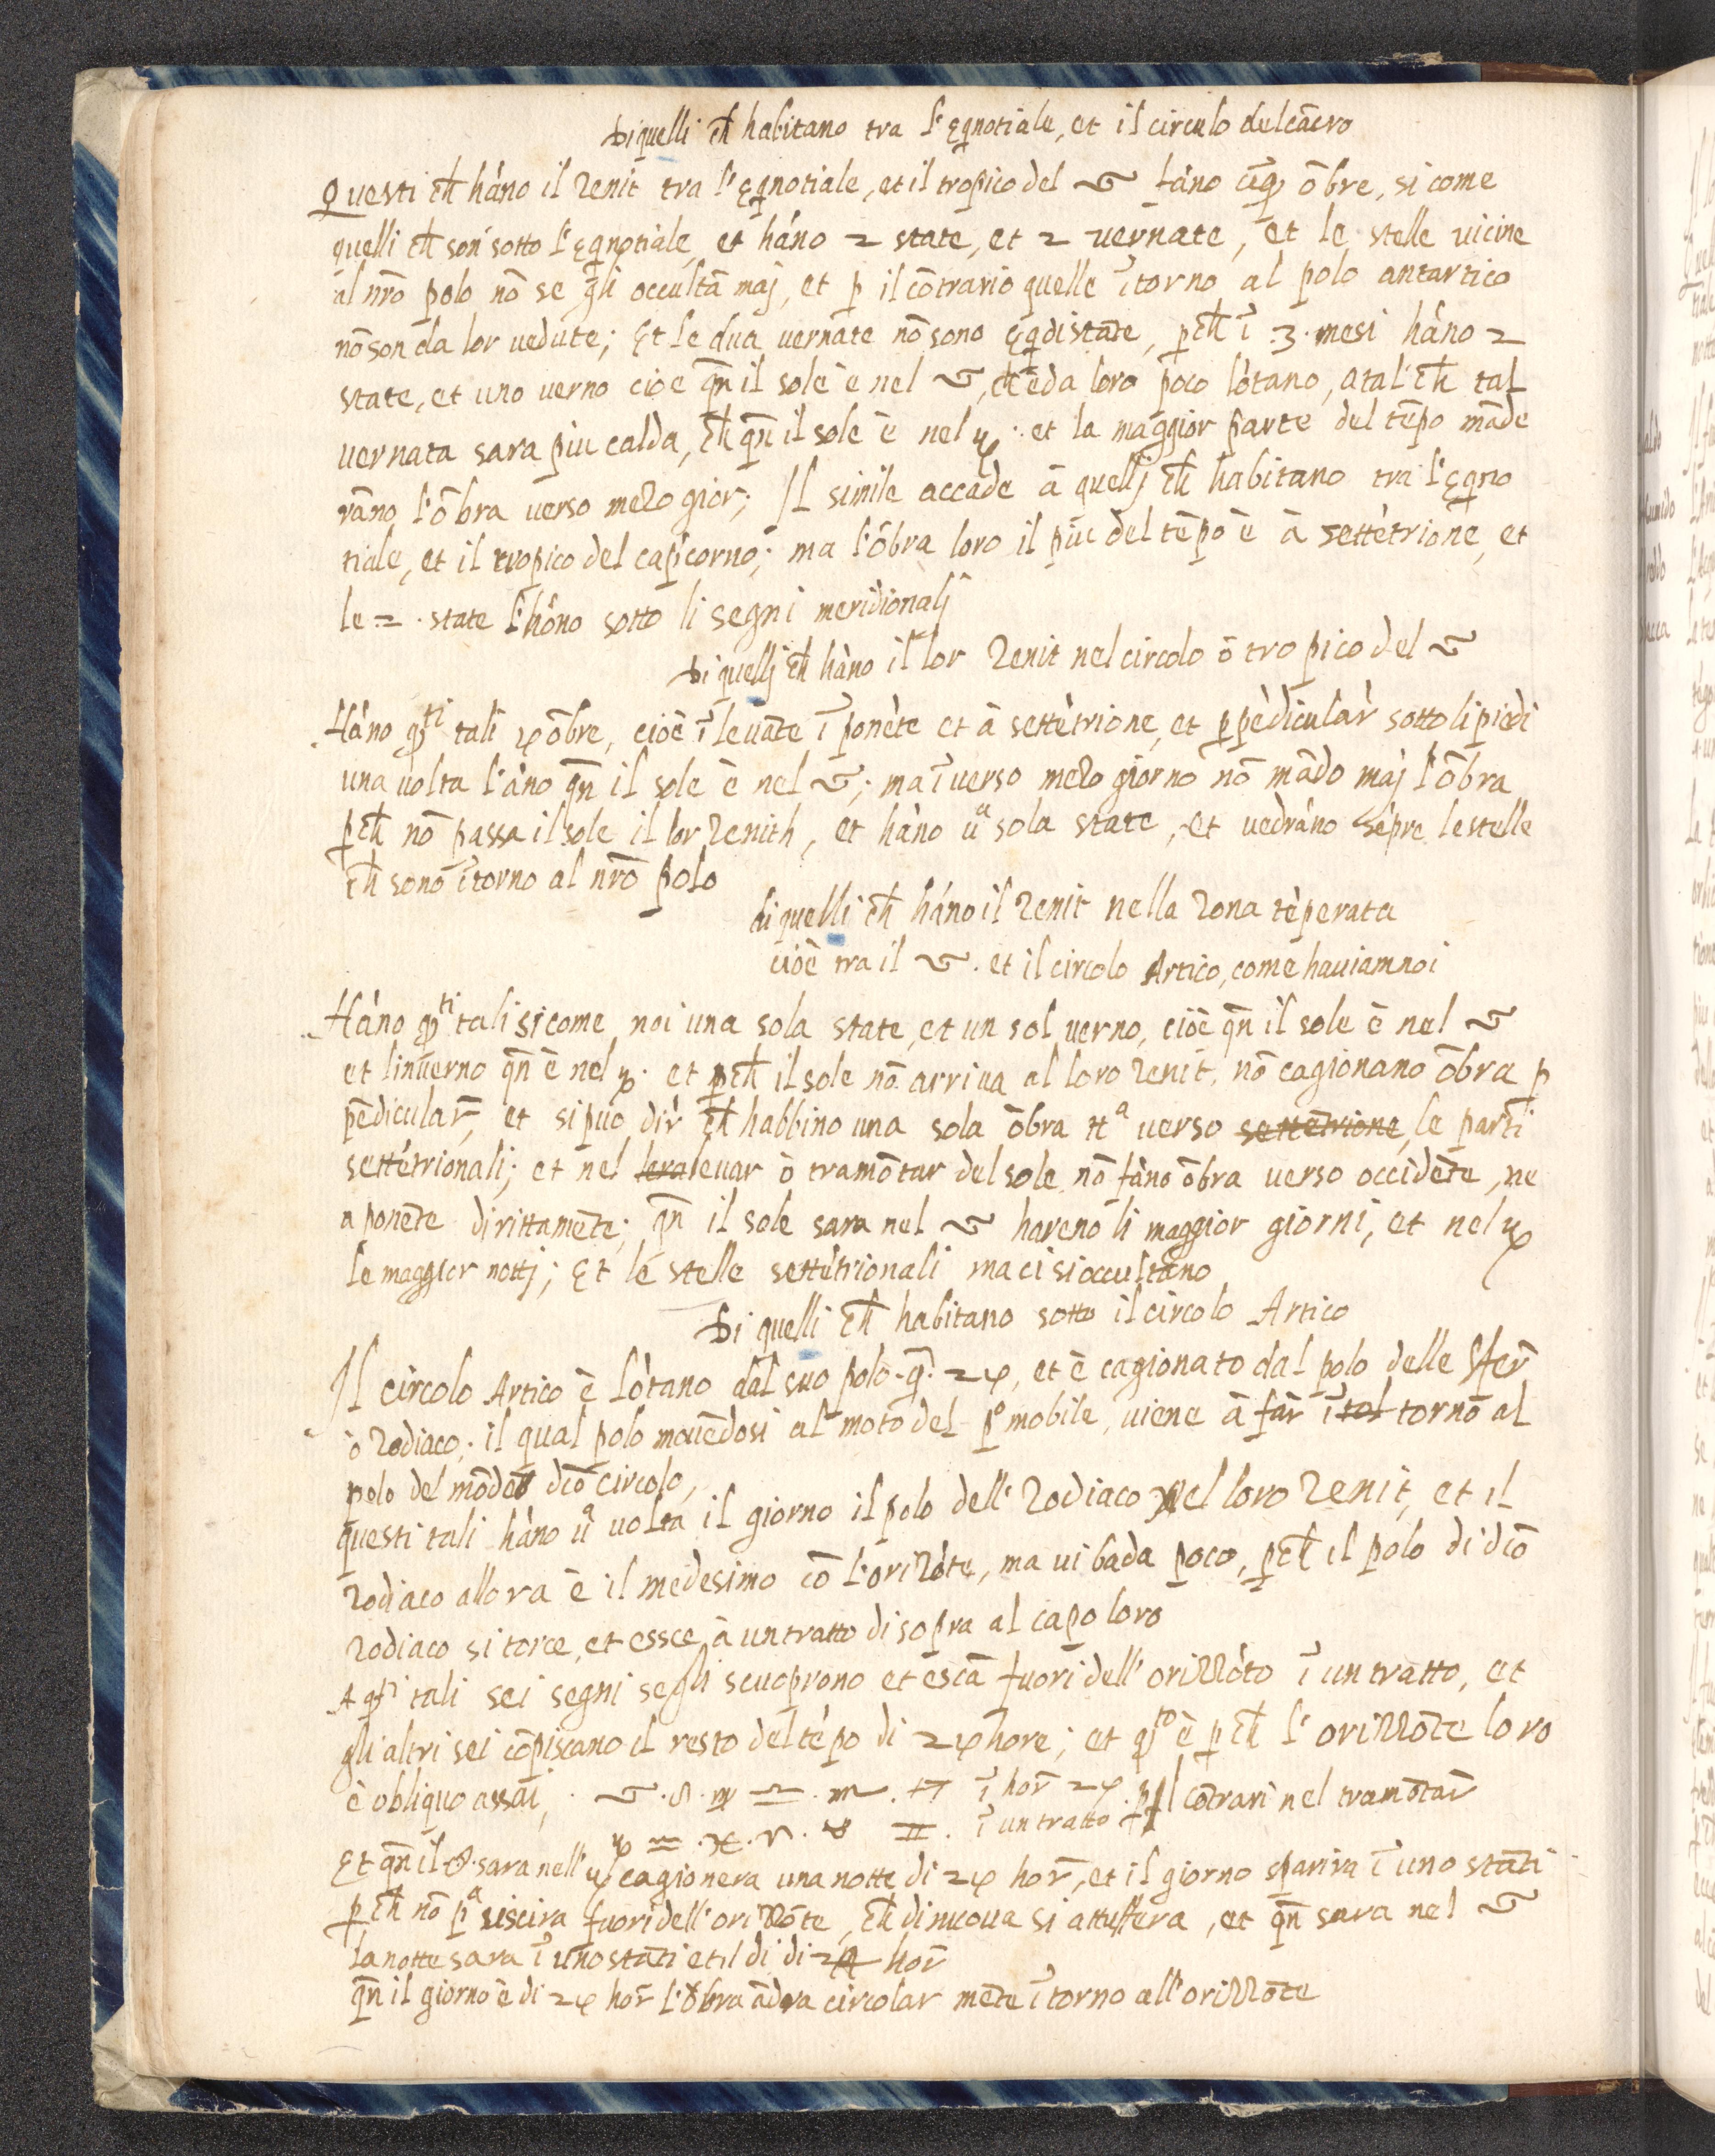 Di quelli ch̄ habitano tra l'Eqnotiale, et il circulo del cācro
Questi ch̄ háno il Zenit tra l'Eqnotiale, et il tropico del ♋ fáno cīq ōbre, si come
quelli ch̄ son' sotto l'Eqnotiale, et háno 2 state, et 2 vernate, et le stelle uicine
al nr̄o polo nō se gli occultā maj, et p il cōtrario quelle ītorno al polo antartico
nō son da lor uedute; Et le dua vernate nō sono Eqdistāte, pch̄ ī .3. mesi háno 2
state, et uno verno cioe qn̄ il sole è nel ♋, ch̄ è da loro poco lōtano, atal' ch̄ tal
vernata sara piu calda, ch̄ qn̄ il sole è nel ♑. et la maggior parte del tēpo māde
rāno l'ōbra verso mezo gior; Il simile accade à quellj ch̄ habitano tra l'Eqno
tiale, et il tropico del capicorno; ma l'ōbra loro il piu del tēpo è à settētrione, et
le 2. state l'hāno sotto li segni meridionalj
Di quellj ch̄ hàno il lor Zenit nel circolo ò tropico del ♋
Hàno qsti tali 4 ōbre, cioè ī leuāte ī ponēte et à settētrione, et ppēdicular sotto li piedi
una uolta l'àno qn̄ il sole è nel ♋; ma īuerso mezo giorno nō mādo maj l'ōbra
pch̄ nō passa il sole il lor Zenith, et hàno ūa sola state, et vedràno sēpre le stelle
ch̄ sono ītorno al nr̄o polo
di quelli ch̄ háno il Zenit nella Zona tēperata
cioè tra il ♋. et il circolo Artico, come hauiam noi
Hàno qsti tali si come noi una sola state, et un sol verno, cioè qn̄ il sole è nel ♋
et linverno qn̄ è nel ♑. et pch̄ il sole nō arriua al loro Zenit, nō cagionano ōbra p
pēdicular, et si puo dir ch̄ habbino una sola ōbra verso settētrione, le parti
settētrionali; et nel leuar ò tramōtar del sole nō fàno ōbra verso occidēte, ne
a ponēte dirittamēte; qn̄ il sole sara nel ♋ hareno li maggior giorni, et nel ♑
le maggior nottj; Et le stelle settētrionali ma ci si occultano
Di quelli ch̄ habitano sotto il circolo Artico
Il circolo Artico è lōtano dal suo polo .g. 24, et è cagionato dal polo delle Sfer
ò Zodiaco; il qual polo mouēdosi al moto del po mobile, uiene à far ī tal torno al
polo del mōdo dc̄o circolo,
questi tali hàno ūa uolta il giorno il polo dell' Zodiaco nel loro Zenit, et il
Zodiaco allora è il medesimo cō l'orizōte, ma ui bada poco, pch̄ il polo di dc̄o
Zodiaco si torce, et essce à un tratto di sopra al capo loro
A qsti tali sei segni segli scuoprono et escā fuori dell' orizzōto ī un tratto, et
gli altri sei cōpiscano il resto del tēpo di 24 hore; et qsto è pch̄ l'orizzōte loro
è obliquo assai, . ♋ . ♌ . ♍ ♎ . ♏ . ♐ ī hor 24 . p il cōtrari nel tramōtar
♑ ♒ . ♓ . ♈ . ♉ ♊ . ī un tratto
Et qn̄ il ☉. sara nell' ♑ cagionera una notte di 24 hor, et il giorno sparira ī uno stāti
pch̄ nō pa uiscira fuori dell' orizzōte, ch̄ di nuoua si attuffera, et qn̄ sara nel ♋
la notte sara ī uno stāti et il di di 24 hor
qn̄ il giorno è di 24 hor l'ōbra ādra circolar mēte ītorno all' orizzōte